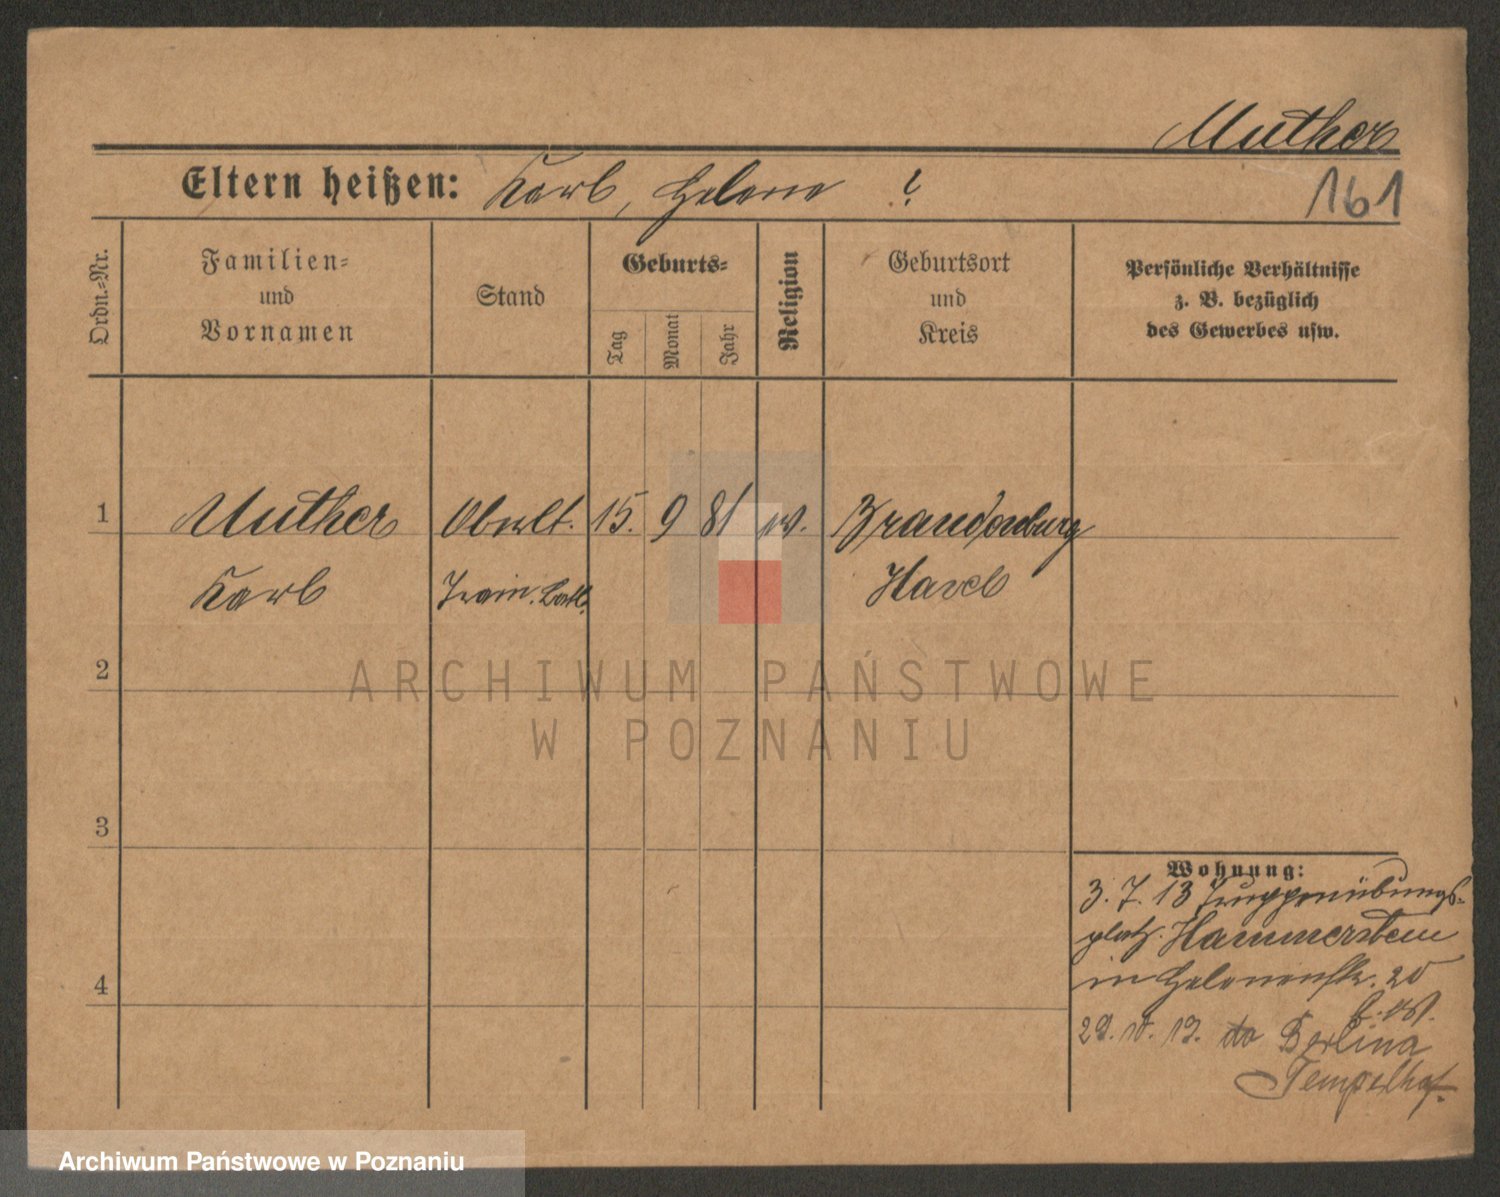 Muther
Eltern heißen: Karl, Helene ?
161
Ordn.-Nr.
Familien-
und
Vornamen
Stand
Geburts-
Tag
Monat
Jahr
Religion
Geburtsort
und
Kreis
Persönliche Verhältnisse
z. B. bezüglich
des Gewerbes usw.
1 Muther Oberlt. 15. 9 81 ev. Brandenburg
Karl Train. Batl. Havel
2
3
4
Wohnung:
3. 7. 13 Truppenübungs-
platz. Hammerstein
in Helenenstr. 20
29. 10. 19. do Berlina
Tempelhof.
ARCHIWUM PAŃSTWOWE
W POZNANIU
Archiwum Państwowe w Poznaniu